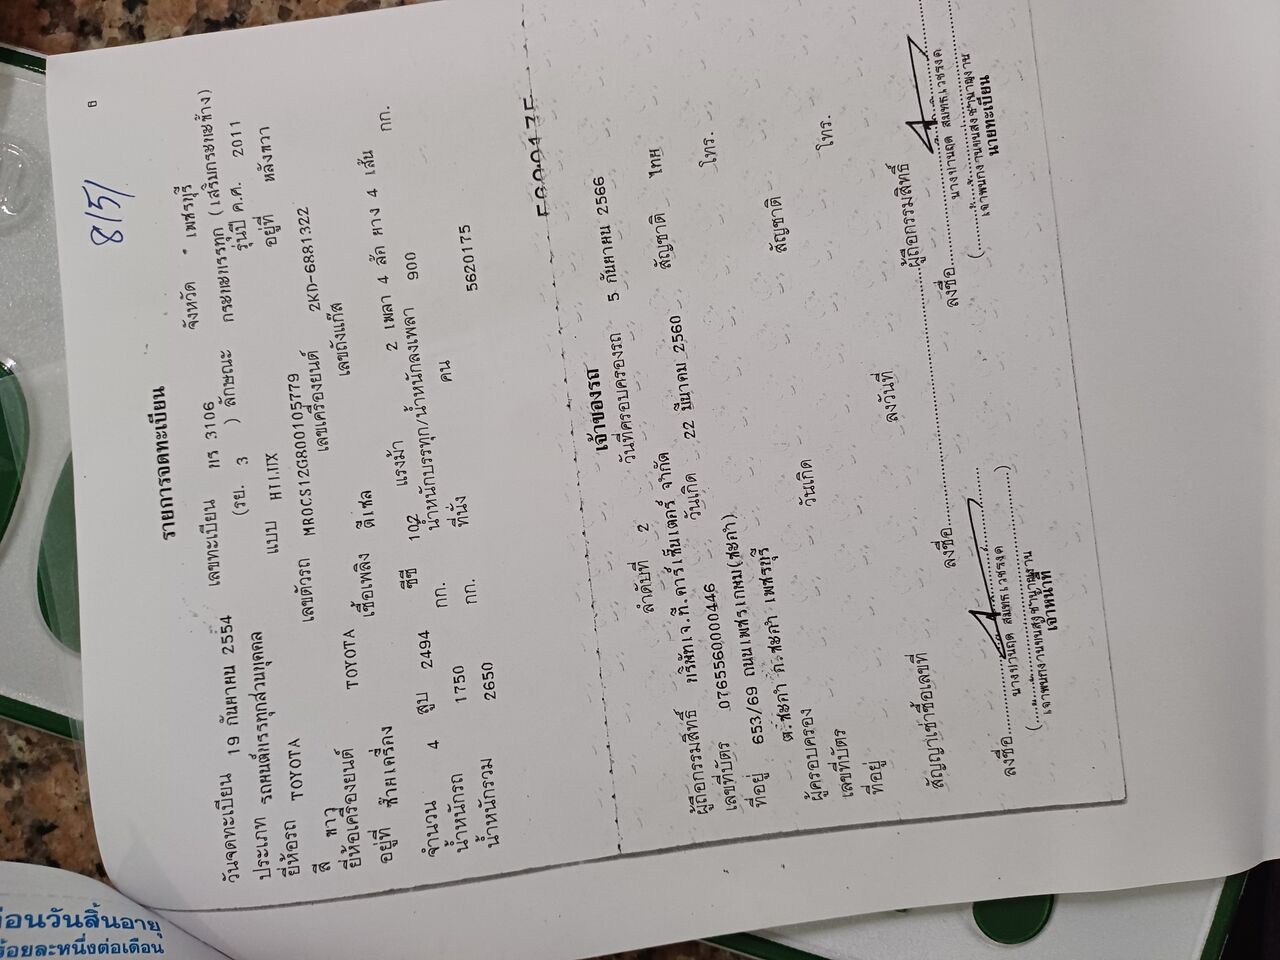 8/5/
6
รายการจดทะเบียน
วันจดทะเบียน 19 กันยายน 2554 เลขทะเบียน 3106 จังหวัด เพชรบุรี
ประเภท รถยนต์บรรทุกส่วนบุคคล (รย. 3 ) ลักษณะ กระบะบรรทุก (เสริมกระบะข้าง)
ยี่ห้อรถ TOYOTA แบบ HILUX รุ่นปี ค.ศ. 2011
สี ขาว เลขตัวรถ MROCS12G800105779 อยู่ที่ หลังขวา
ยี่ห้อเครื่องยนต์ TOYOTA เลขเครื่องยนต์ 2KD-6881322
อยู่ที่ ซ้ายเครื่อง เชื้อเพลิง ดีเซล เลขถังแก๊ส
จำนวน 4 สูบ 2494 ซีซี 102 แรงม้า 2 เพลา 4 ล้อ ยาง 4 เส้น
น้ำหนักรถ 1750 กก. น้ำหนักบรรทุก/น้ำหนักลงเพลา 900 กก.
น้ำหนักรวม 2650 กก. ที่นั่ง คน 5620175
เจ้าของรถ
ลำดับที่ 2 วันที่ครอบครองรถ 5 กันยายน 2566
ผู้ถือกรรมสิทธิ์ บริษัทเจ.ที.คาร์เซ็นเตอร์ จำกัด
เลขที่บัตร 0765560000446 วันเกิด 22 มีนาคม 2560 สัญชาติ ไทย
ที่อยู่ 653/69 ถนนเพชรเกษม(ชะอำ) โทร.
ต.ชะอำ อ.ชะอำ เพชรบุรี
ผู้ครอบครอง
เลขที่บัตร วันเกิด สัญชาติ
ที่อยู่ โทร.
สัญญาเช่าซื้อเลขที่ ลงวันที่ ผู้ถือกรรมสิทธิ์
ลงชื่อ ลงชื่อ
ลงชื่อ
เจ้าพนักงานขนส่งชำนาญงาน
เจ้าหน้าที่
เจ้าพนักงานขนส่งชำนาญงาน
นายทะเบียน
่อนวันสิ้นอายุ
ร้อยละหนึ่งต่อเดือน